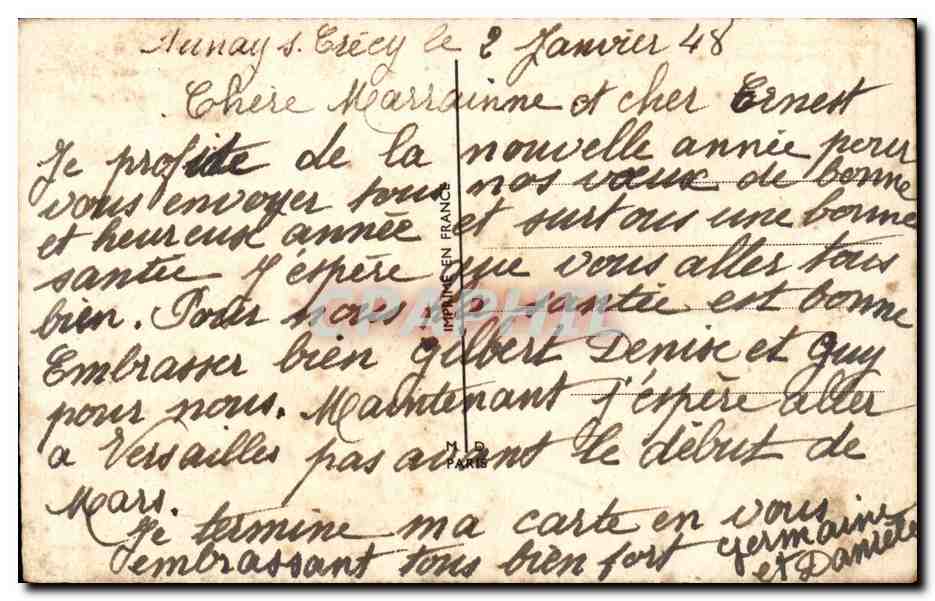 Aunay s. Crécy le 2 Janvier 48
Chère Marrainne et cher Ernest
Je profite de la nouvelle année pour
vous envoyer tous nos vœux de bonne
et heureux année et surtous une bonne
santée J'espère que vous aller tous
bien. Pour nous la santée est bonne
Embrasser bien Gilbert Denise et Guy
pour nous. Maintenant j'espère aller
a Versailles pas avant le début de
Mars.
Je termine ma carte en vous
embrassant tous bien fort Germaine
et Danièle
IMPRIMÉ EN FRANCE
M D
PARIS
CPAPHIL